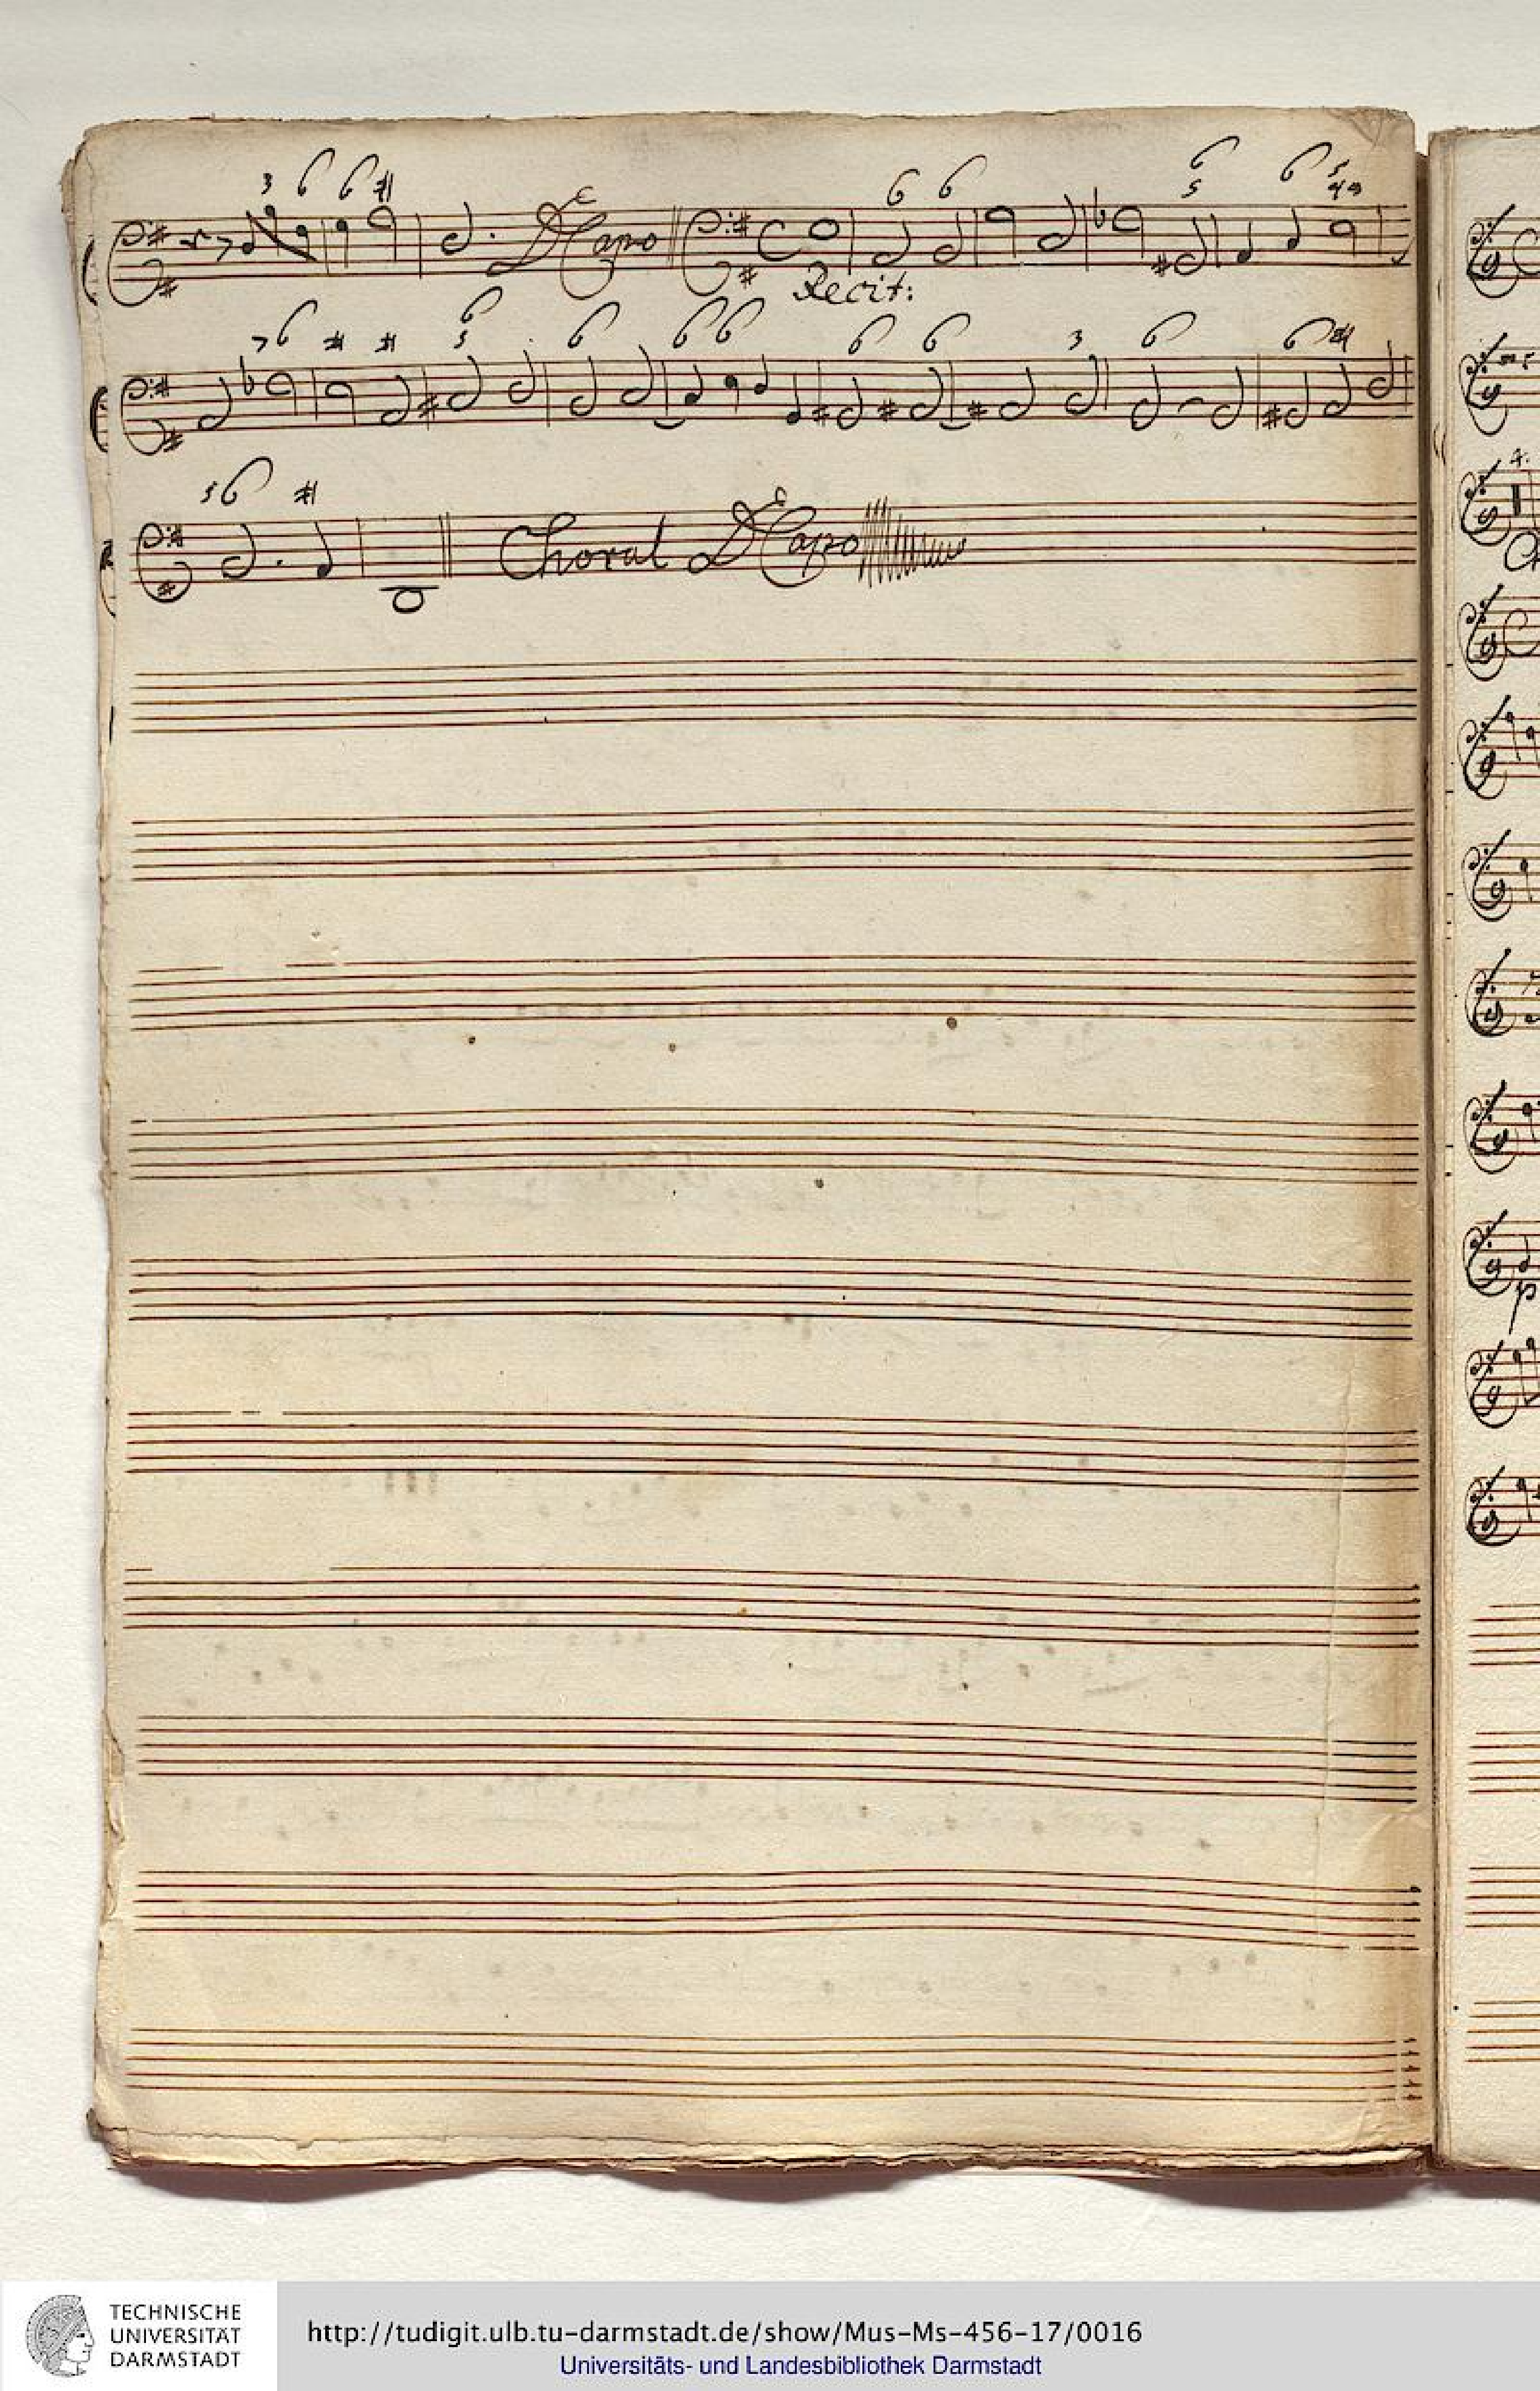 3 6 6 #
D C Capo
6 6 6 5 6 5 4 3
Recit:
7 6 # # 6 5 6 6 6 6 6 3 6 6 #
5 6 #
Choral D C Capo
TECHNISCHE
UNIVERSITÄT
DARMSTADT
http://tudigit.ulb.tu-darmstadt.de/show/Mus-Ms-456-17/0016
Universitäts- und Landesbibliothek Darmstadt